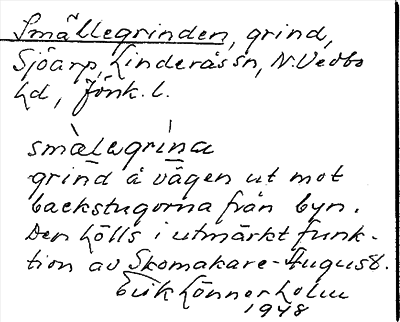 Smällegrinden, grind,
Sjöarp, Linderås sn, N. Vedbo
hd, Jönk. l.
smàlagrína
grind å vägen ut mot
backstugorna från byn.
Den hölls i utmärkt funk-
tion av Skomakare-August.
Erik Lönnerholm
1948